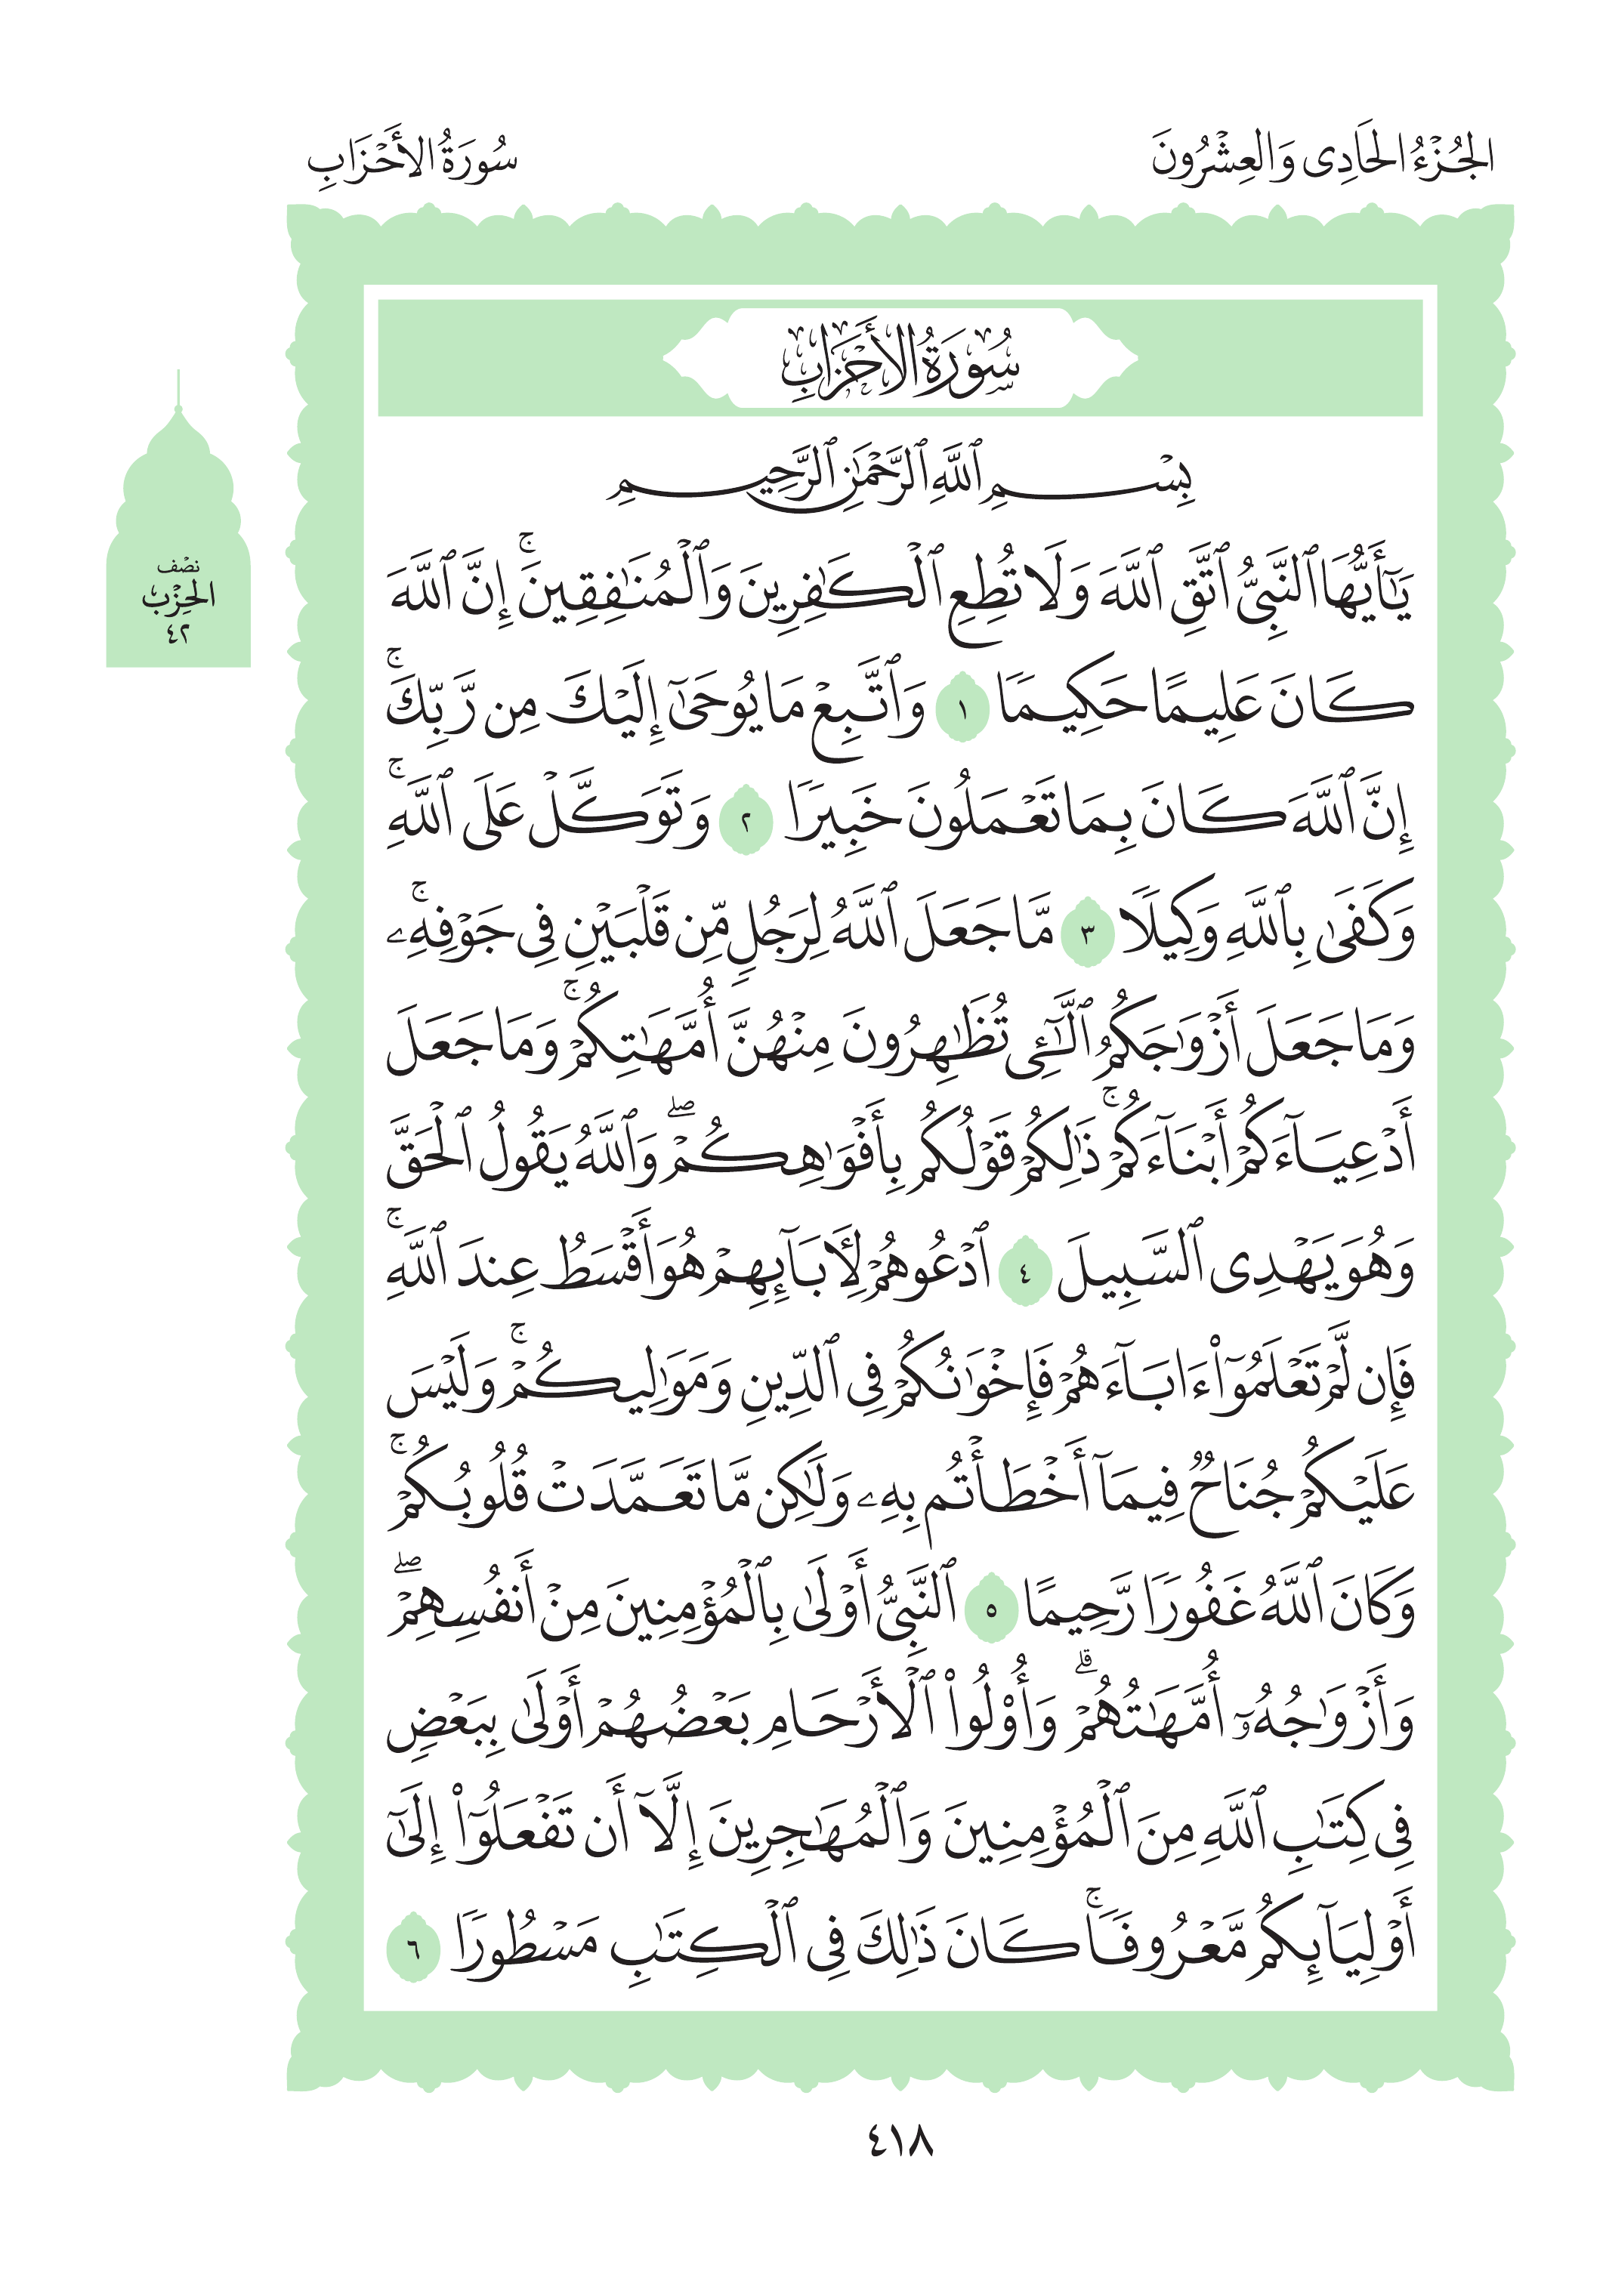 الجُزْءُ الحَادِى وَالعِشْرُونَ
سُورَةُ الأَحْزَابِ
سُورَةُ الأَحْزَابِ
بِسْمِ ٱللَّهِ ٱلرَّحْمَٰنِ ٱلرَّحِيمِ
يَٰٓأَيُّهَا ٱلنَّبِىُّ ٱتَّقِ ٱللَّهَ وَلَا تُطِعِ ٱلْكَٰفِرِينَ وَٱلْمُنَٰفِقِينَ ۚ إِنَّ ٱللَّهَ
كَانَ عَلِيمًا حَكِيمًا ١ وَٱتَّبِعْ مَا يُوحَىٰٓ إِلَيْكَ مِن رَّبِّكَ ۚ
إِنَّ ٱللَّهَ كَانَ بِمَا تَعْمَلُونَ خَبِيرًا ٢ وَتَوَكَّلْ عَلَى ٱللَّهِ ۚ
وَكَفَىٰ بِٱللَّهِ وَكِيلًا ٣ مَّا جَعَلَ ٱللَّهُ لِرَجُلٍ مِّن قَلْبَيْنِ فِى جَوْفِهِۦ ۚ
وَمَا جَعَلَ أَزْوَٰجَكُمُ ٱلَّٰٓـِٔى تُظَٰهِرُونَ مِنْهُنَّ أُمَّهَٰتِكُمْ ۚ وَمَا جَعَلَ
أَدْعِيَآءَكُمْ أَبْنَآءَكُمْ ۚ ذَٰلِكُمْ قَوْلُكُم بِأَفْوَٰهِكُمْ ۖ وَٱللَّهُ يَقُولُ ٱلْحَقَّ
وَهُوَ يَهْدِى ٱلسَّبِيلَ ٤ ٱدْعُوهُمْ لِـَٔابَآئِهِمْ هُوَ أَقْسَطُ عِندَ ٱللَّهِ ۚ
فَإِن لَّمْ تَعْلَمُوٓا۟ ءَابَآءَهُمْ فَإِخْوَٰنُكُمْ فِى ٱلدِّينِ وَمَوَٰلِيكُمْ ۚ وَلَيْسَ
عَلَيْكُمْ جُنَاحٌ فِيمَآ أَخْطَأْتُم بِهِۦ وَلَٰكِن مَّا تَعَمَّدَتْ قُلُوبُكُمْ ۚ
وَكَانَ ٱللَّهُ غَفُورًا رَّحِيمًا ٥ ٱلنَّبِىُّ أَوْلَىٰ بِٱلْمُؤْمِنِينَ مِنْ أَنفُسِهِمْ ۖ
وَأَزْوَٰجُهُۥٓ أُمَّهَٰتُهُمْ ۗ وَأُو۟لُوا۟ ٱلْأَرْحَامِ بَعْضُهُمْ أَوْلَىٰ بِبَعْضٍ
فِى كِتَٰبِ ٱللَّهِ مِنَ ٱلْمُؤْمِنِينَ وَٱلْمُهَٰجِرِينَ إِلَّآ أَن تَفْعَلُوٓا۟ إِلَىٰٓ
أَوْلِيَآئِكُم مَّعْرُوفًا ۚ كَانَ ذَٰلِكَ فِى ٱلْكِتَٰبِ مَسْطُورًا ٦
نصْف
الحِزْب
٤٢
٤١٨